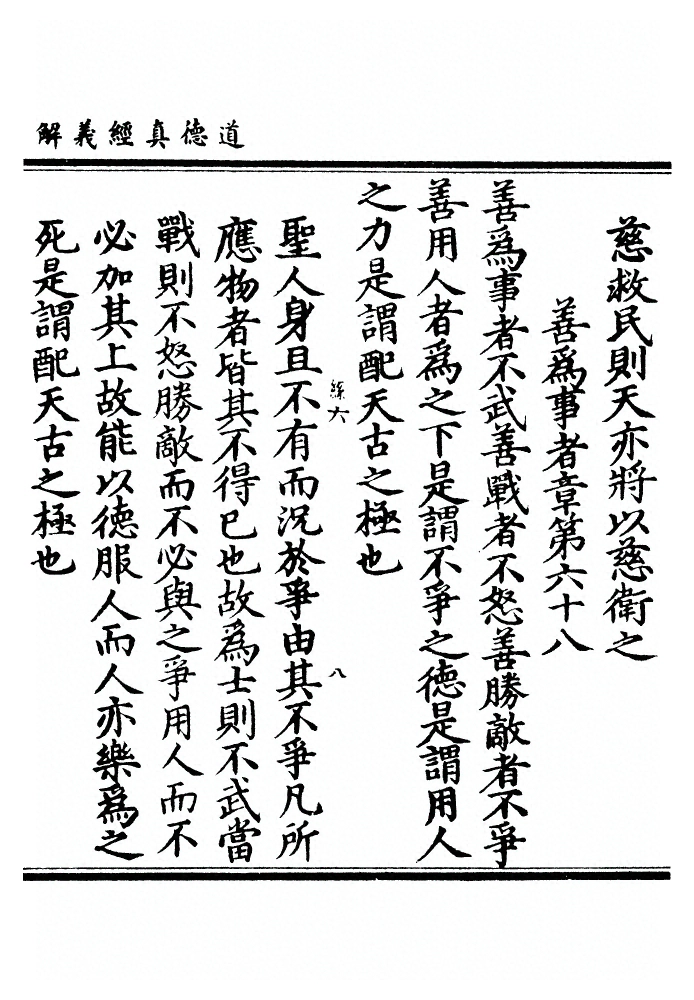 道德真經義解
慈救民則天亦將以慈衛之
善為事者章第六十八
善為事者不武善戰者不怒善勝敵者不爭
善用人者為之下是謂不爭之德是謂用人
之力是謂配天古之極也
聖人身且不有而況於爭由其不爭凡所
應物者皆其不得已也故為士則不武當
戰則不怒勝敵而不必與之爭用人而不
必加其上故能以德服人而人亦樂為之
死是謂配天古之極也
六
八